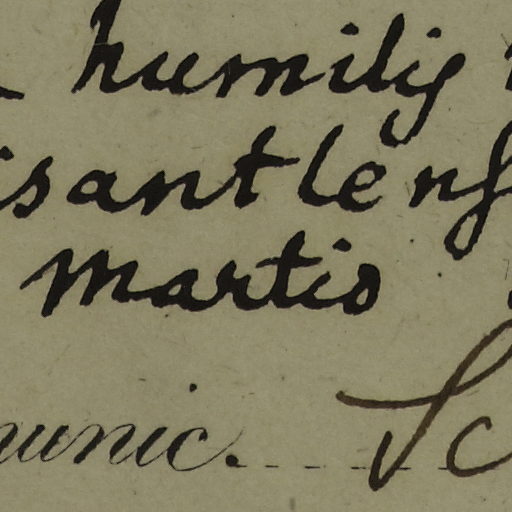 humilis
isantlens
martio
unic. Sc